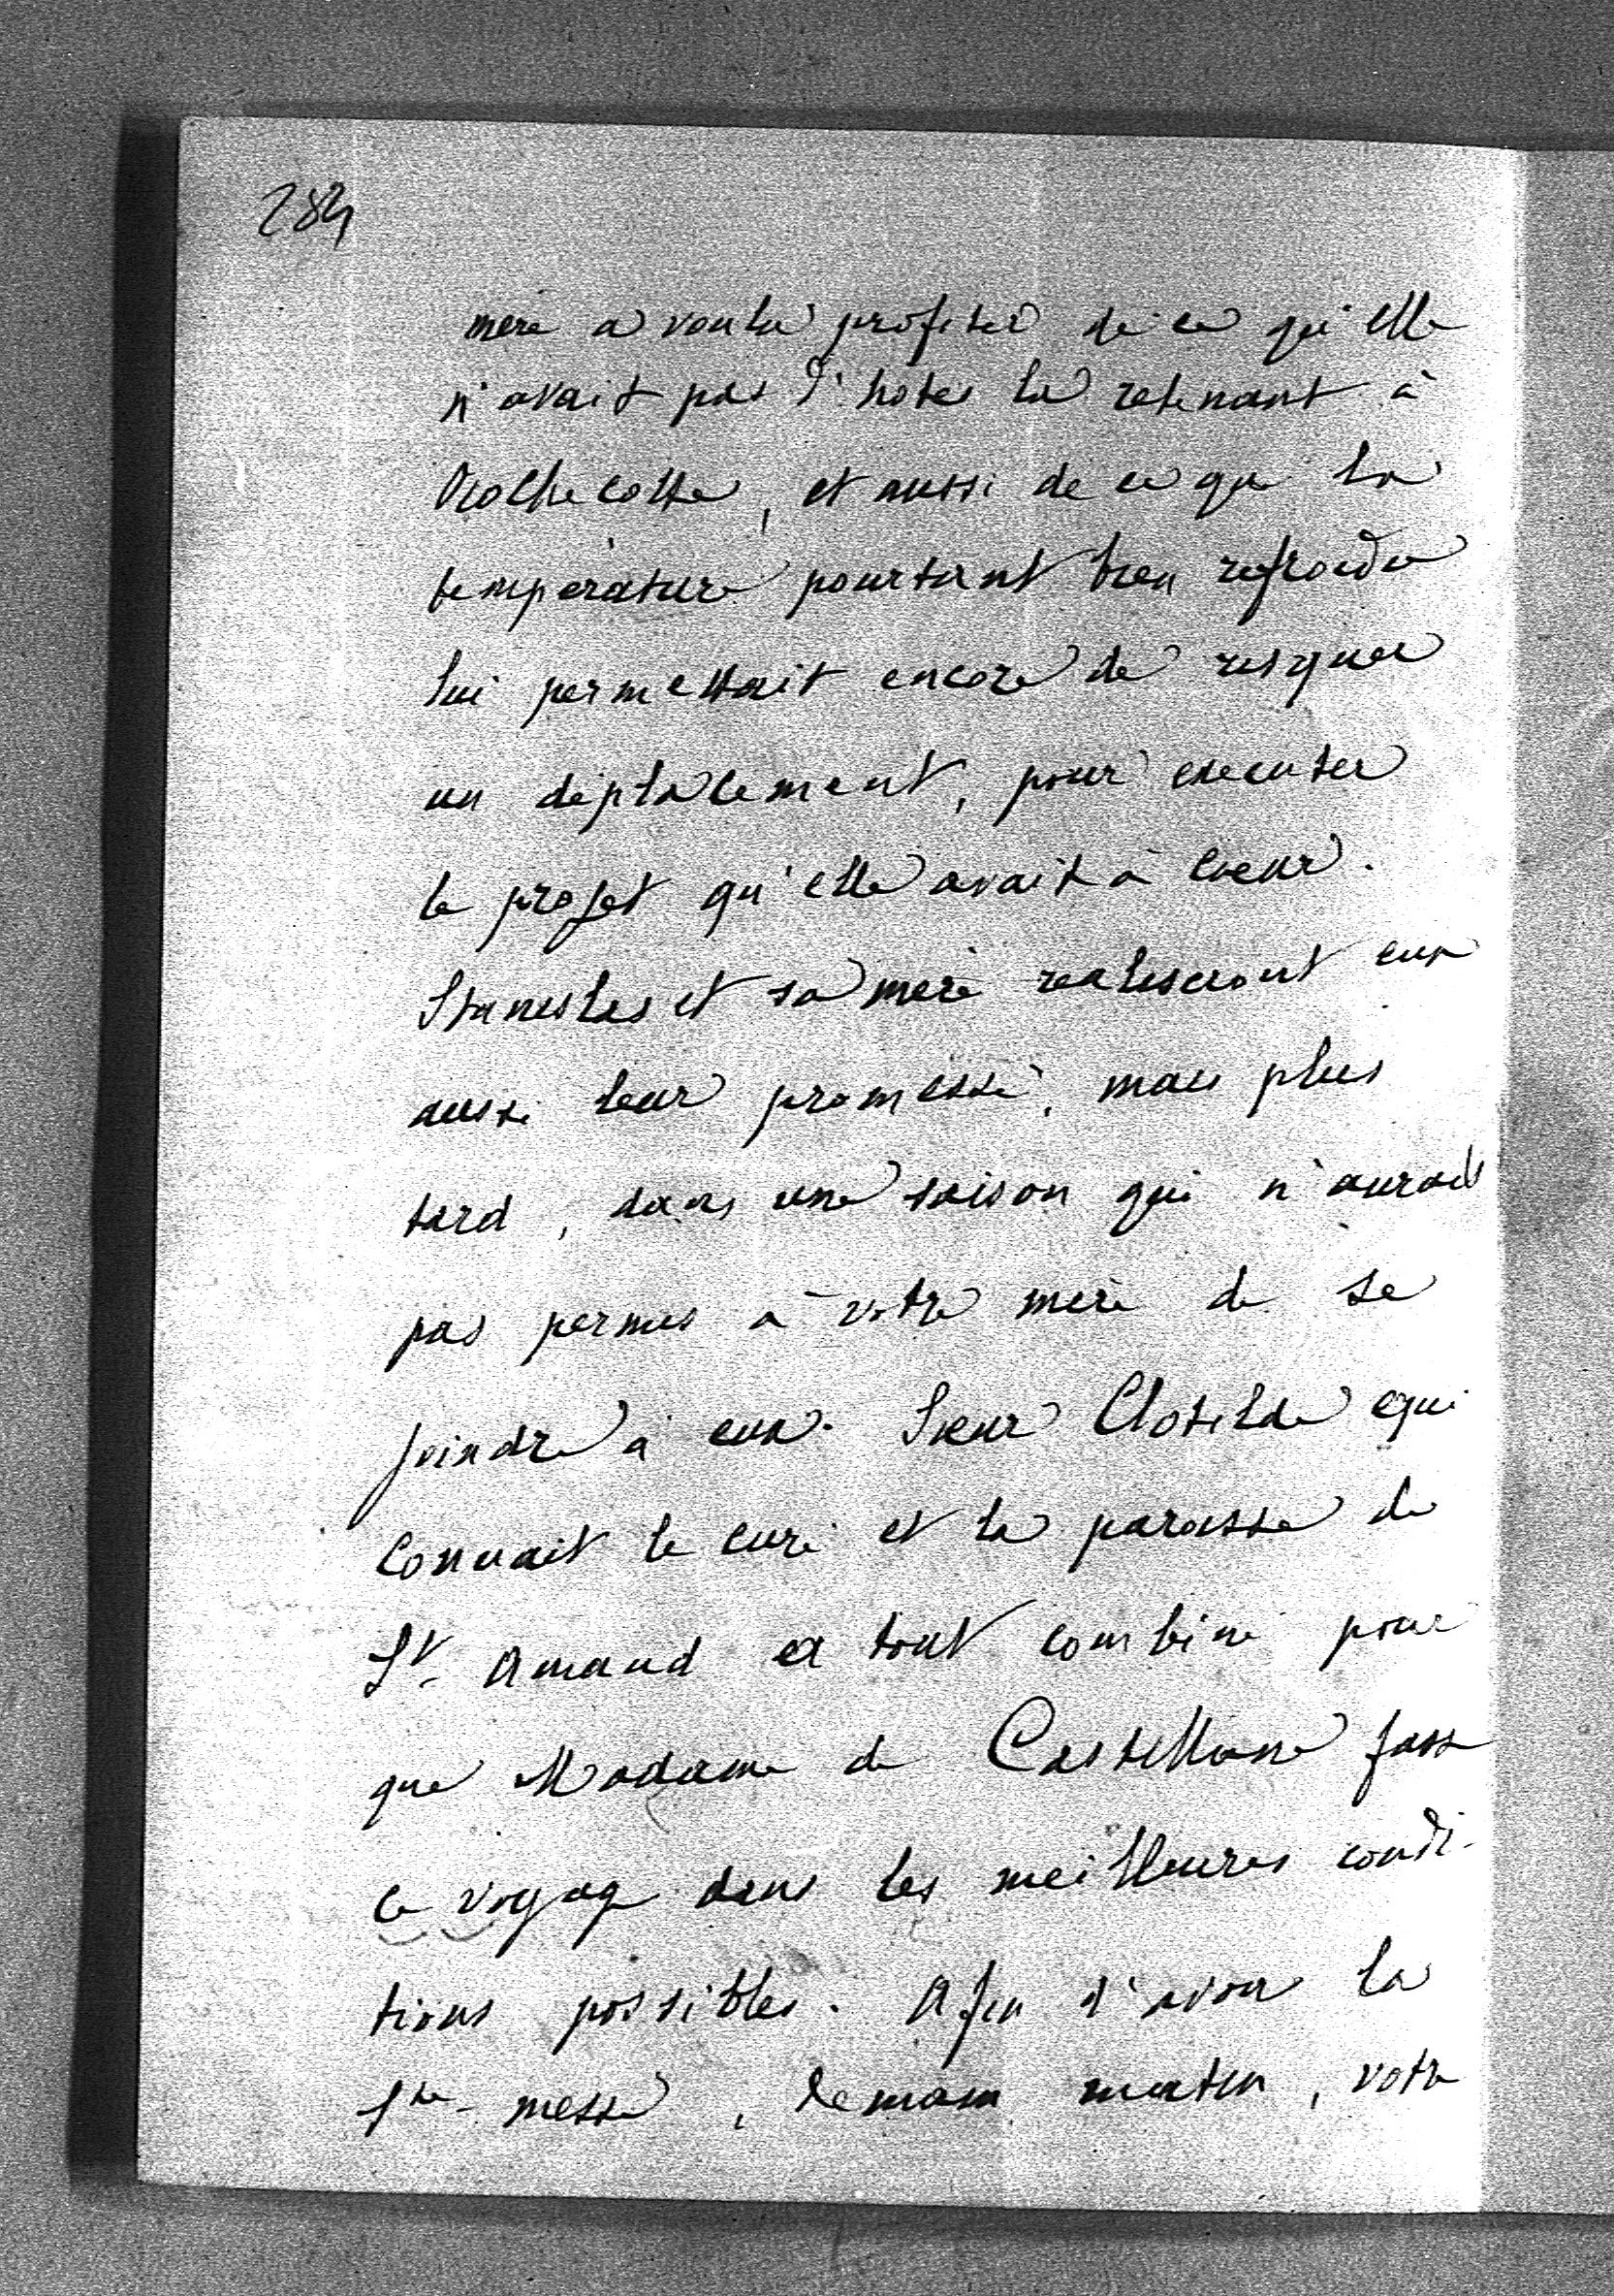 284
mère a voulu profiter de ce qu'elle
n'avait pas d'hotes la retenant à
Rochecotte, et aussi de ce que la
température pourtant bien refroidie
lui permettait encore de risquer
un déplacement, pour executer
le projet qu'elle avait à coeur.
Stanislas et sa mère realiseront eux
aussi leur promesse, mais plus
tard, dans une saison qui n'aurait
pas permis à votre mère de se
joindre à eux. Soeur Clotilde qui
connait le curé et la paroisse de
St. Amand a tout combiné pour
que Madame de Castellane fasse
ce voyage dans les meilleures condi-
tions possibles. Afin d'avoir la
Ste. messe, demain matin, votre